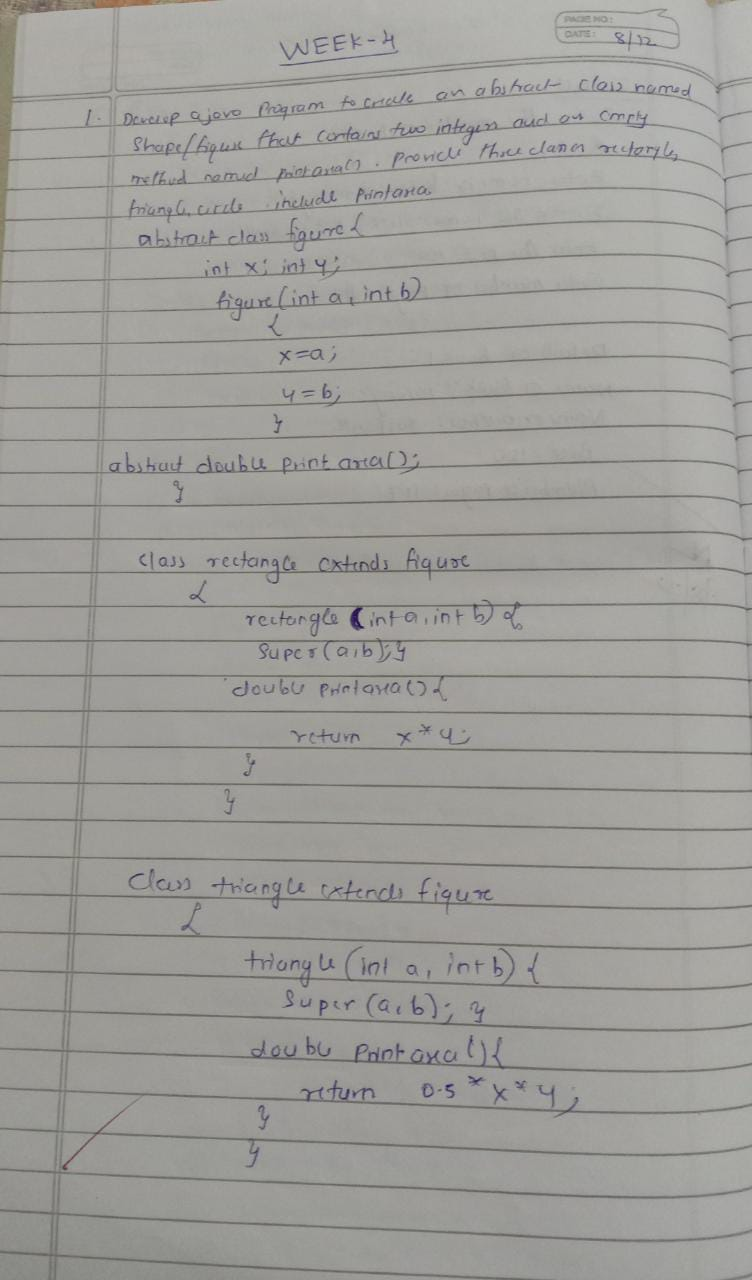 PAGE NO:
DATE: 8/12
WEEK-4
1. Develop a java Program to create an abstract class named
Shape/figure that contains two integers and an empty
method named printarea(). Provide three classes rectangle,
triangle, circle include Printarea
abstract class figure {
int x; int y;
figure (int a, int b)
{
x=a;
y=b;
}
abstract double print area();
}
class rectangle extends figure
{
rectangle (int a, int b) {
super(a,b);}
double printarea() {
return x*y;
}
}
Class triangle extends figure
{
triangle (int a, int b) {
super (a,b); }
double Print area() {
return 0.5 * x * y;
}
}